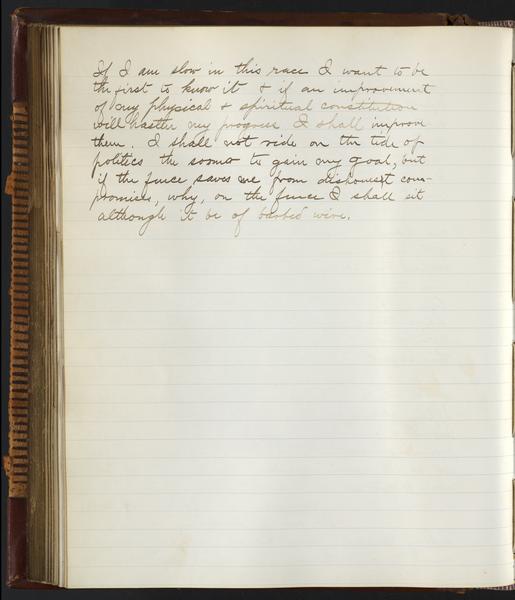 If I am slow in this race I want to be
the first to know it & if an improvement
of my physical & spiritual constitution
will hasten my progress I shall improve
them. I shall not ride on the tide of
politics the sooner to gain my goal, but
if the fence saves me from dishonest com-
promises, why, on the fence I shall sit
although it be of barbed wire.